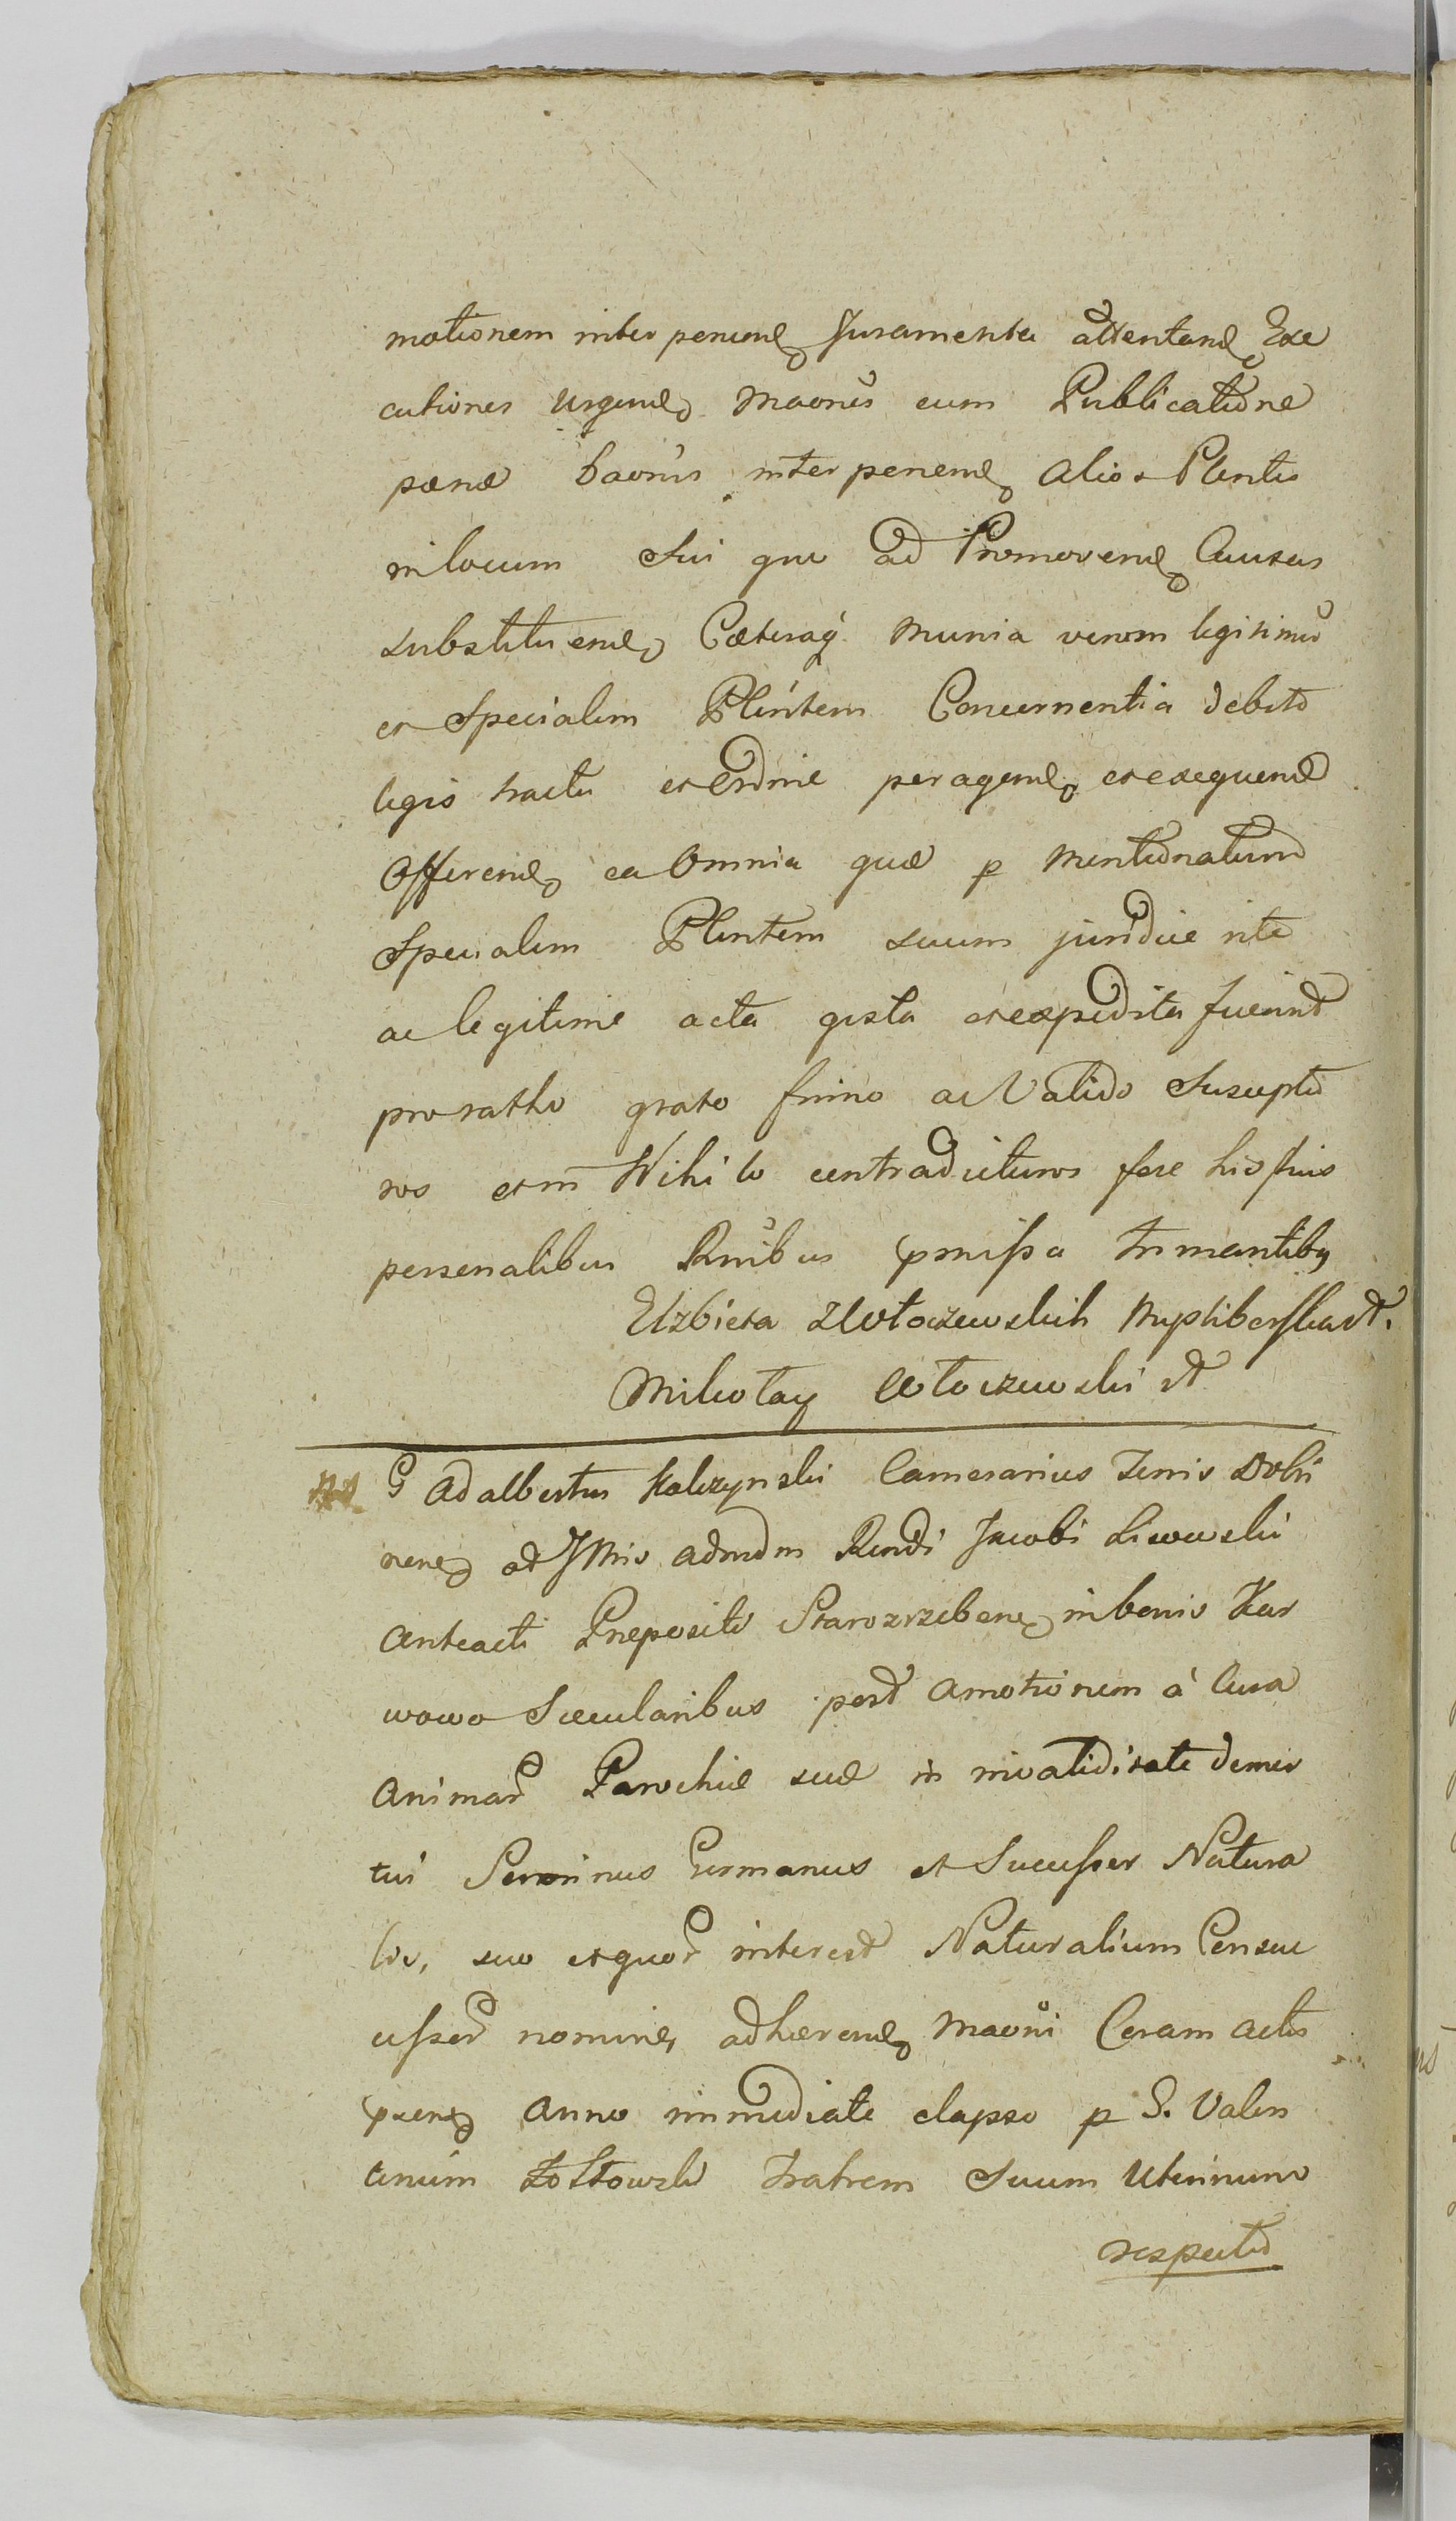 motionem interponend Juramenta attentand Exe
cutiones Urgend Maonis cum Publicatione
pœnæ baonis interponend alios Plentes
in locum sui quo ad Promovend Causas
substituend Cæteraq munia verum legitimu
et Specialem Plentem Concernentia debito
legis tractu et ordine peragend et exequend
Offerend ea Omnia quæ p mentionatum
Specialem Plentem suum juridice rite
ac legitime acta gesta et expedita fuerint
pro ratho grato firmo ac Valido Suscepto
ros et in Nihilo contradicturos fore his suis
personalibus Rnibus pmissa firmantibus
Elzbieta Wołoczewskich
Mikołay Wołoczewski
G Adalbertus Kalczynski Camerarius Terris Dobri
nens ad Illris admdm Rendi Jacobi Lisowski
anteacti Prepositi Starozrzebens in bonis Kar
wowo Sæcularibus post amotionem à Cura
animar Parochiæ suæ in invaliditate demor
tui Germanus et Sucessor Natura
lis, suo et quor interest Naturalium Consuc
cessor nomine, adhærend Maoni Coram actis
psens anno immediate elapso p G. Valen
tinum Żołtowski Fratrem Suum Uterinum
respectu